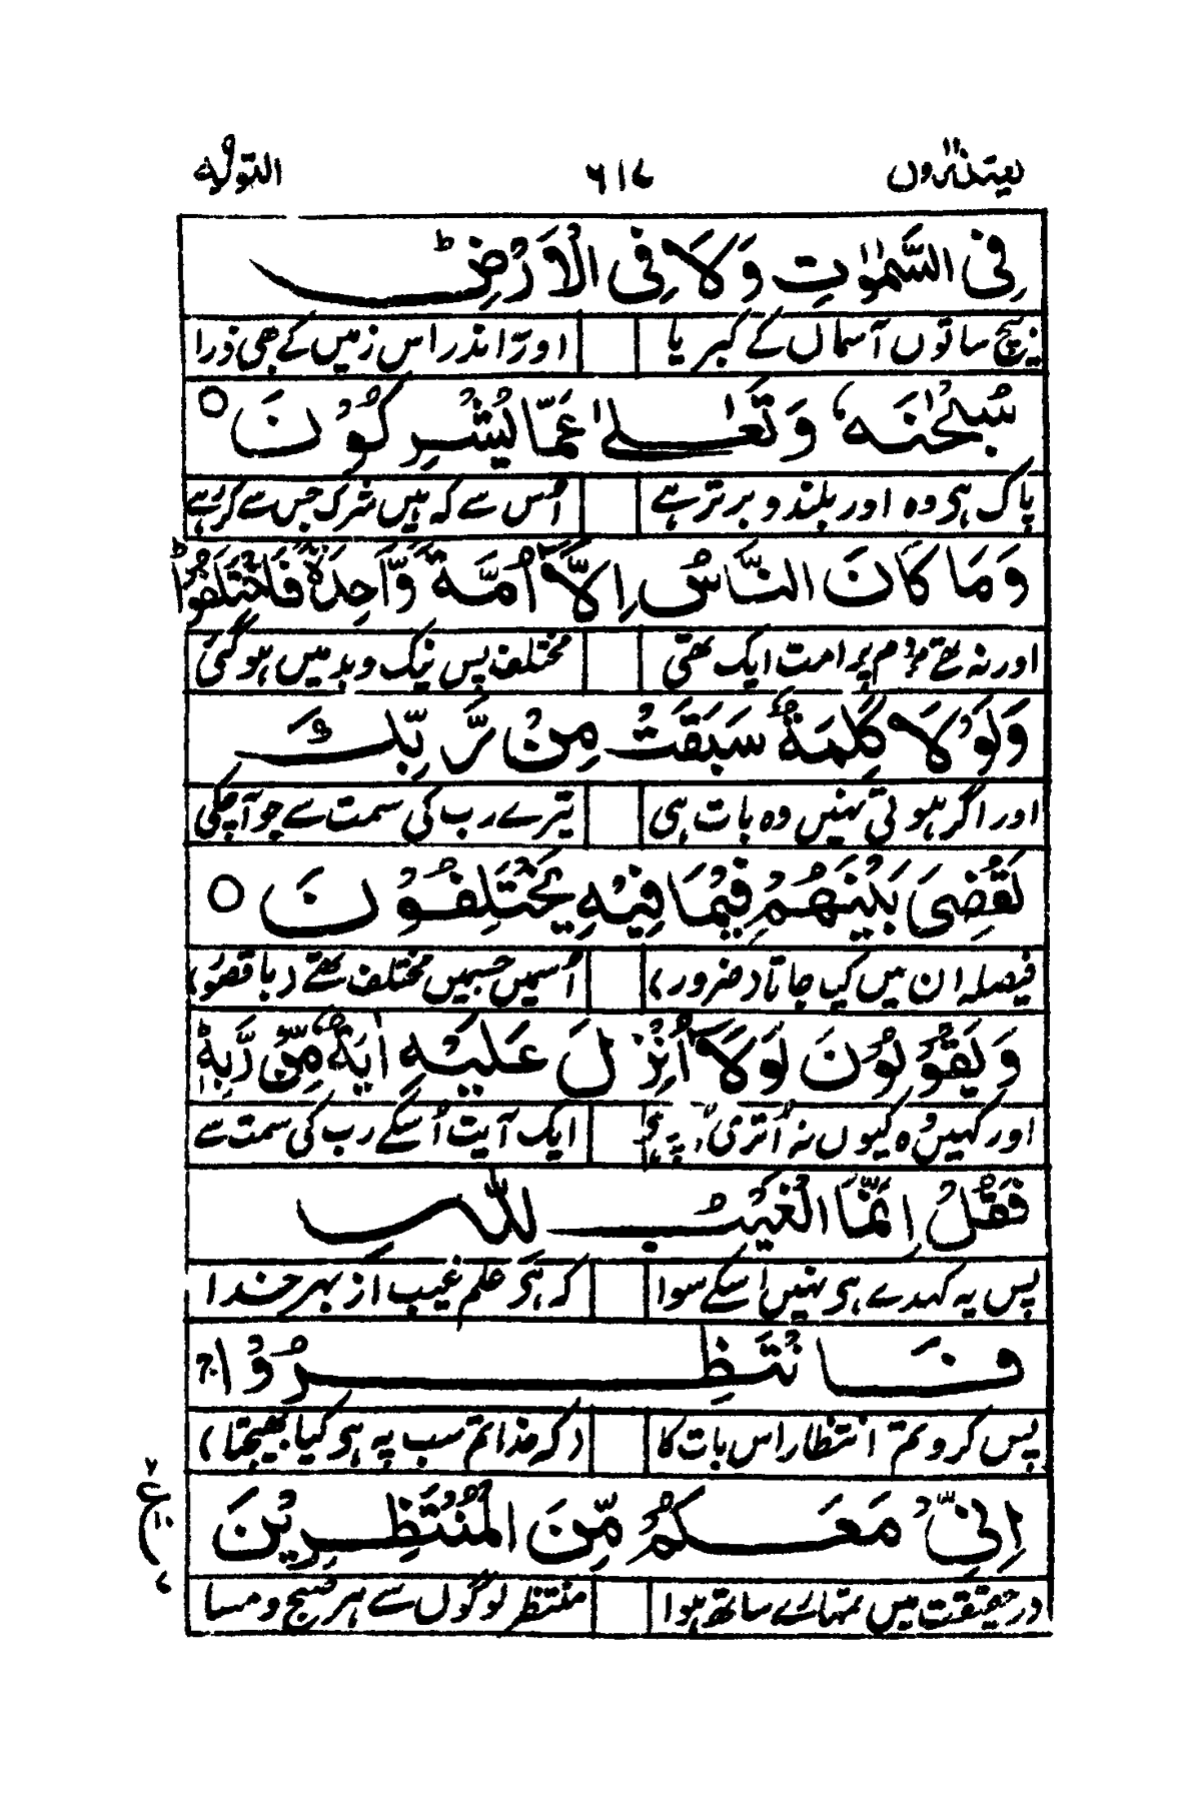 یعتذرون ۱۱ ۶۱۷ التوبة ۹
فِی السَّمٰوٰتِ وَلَا فِی الْاَرْضِ ؕ
بیچ ساتوں آسماں کے کبر یا اور اندر اس زمیں کے بھی ذرا
سُبْحٰنَهٗ وَتَعٰلٰی عَمَّا یُشْرِکُوْنَ ○
پاک ہی وہ اور بلند و برتر ہے اُس سے کہ ہیں شرک جس سے کر رہے
وَمَا کَانَ النَّاسُ اِلَّاۤ اُمَّةً وَّاحِدَةً فَاخْتَلَفُوْا ؕ
اور نہ تھے مردم پر امت ایک تھی مختلف پس نیک و بد میں ہو گئی
وَلَوْ لَا کَلِمَةٌ سَبَقَتْ مِنْ رَّبِّكَ
اور اگر ہوتی نہیں وہ بات ہی تیرے رب کی سمت سے جو آچکی
لَقُضِیَ بَیْنَهُمْ فِیْمَا فِیْهِ یَخْتَلِفُوْنَ ○
فیصلہ ان میں کیا جاتا (ضرور) اُسمیں جسمیں مختلف تھے (با قصور)
وَیَقُوْلُوْنَ لَوْلَاۤ اُنْزِلَ عَلَیْهِ اٰیَةٌ مِّنْ رَّبِّهٖ ؕ
اور کہیں وہ کیوں نہ اُتری ایک آیت اُسکے رب کی سمت سے
فَقُلْ اِنَّمَا الْغَیْبُ لِلّٰهِ
پس یہ کہدے ہی نہیں اسکے سوا کہ ہی علم غیب از بہر خدا
فَانْتَظِرُوْا ۚ
پس کرو تم انتظار اس بات کا (کہ خدا تم سب پہ ہی کیا بھیجتا)
اِنِّیْ مَعَکُمْ مِّنَ الْمُنْتَظِرِیْنَ
در حقیقت میں تمہارے ساتھ ہوا منتظر لوگوں سے ہر صبح و مسا